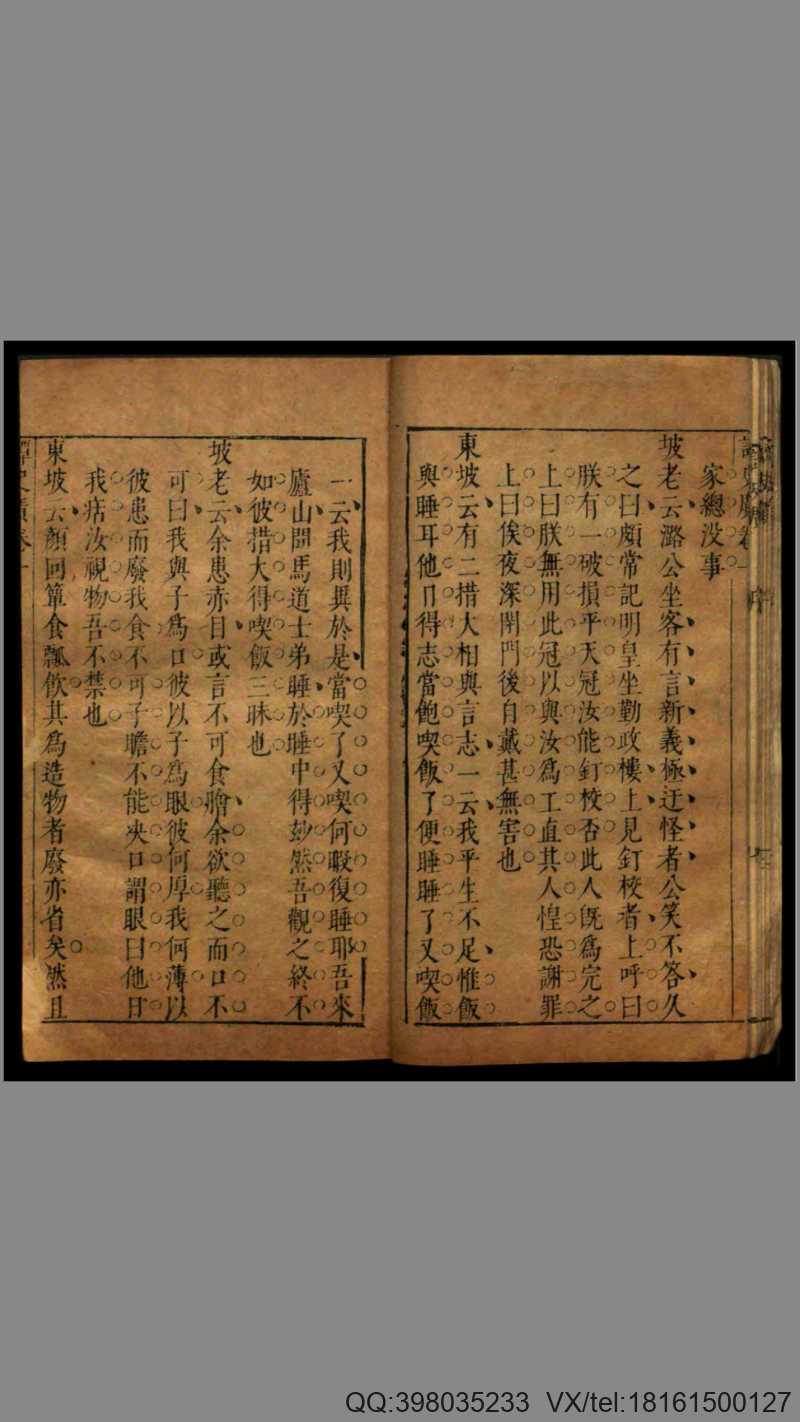 家總没事
坡老云潞公坐客有言新義極迂怪者公笑不答久
之曰頗常記明皇坐勤政樓上見釘校者上呼曰
朕有一破損平天冠汝能釘校否此人旣爲完之
上曰朕無用此冠以與汝爲工直其人惶恐謝罪
上曰俟夜深閉門後自戴甚無害也
東坡云有二措大相與言志一云我平生不足惟飯
與睡耳他日得志當飽喫飯了便睡睡了又喫飯
一云我則異於是當喫了又喫何暇復睡耶吾來
廬山聞馬道士弟睡於睡中得妙然吾觀之終不
如彼措大得喫飯三昧也
坡老云余患赤目或言不可食膾余欲聽之而口不
可曰我與子爲口彼以子爲眼彼何厚我何薄以
彼患而廢我食不可子瞻不能决口謂眼曰他日
我痁汝視物吾不禁也
東坡云顏回簞食瓢飲其爲造物者廢亦省矣然且
譚史廣卷一
QQ:398035233 VX/tel:18161500127